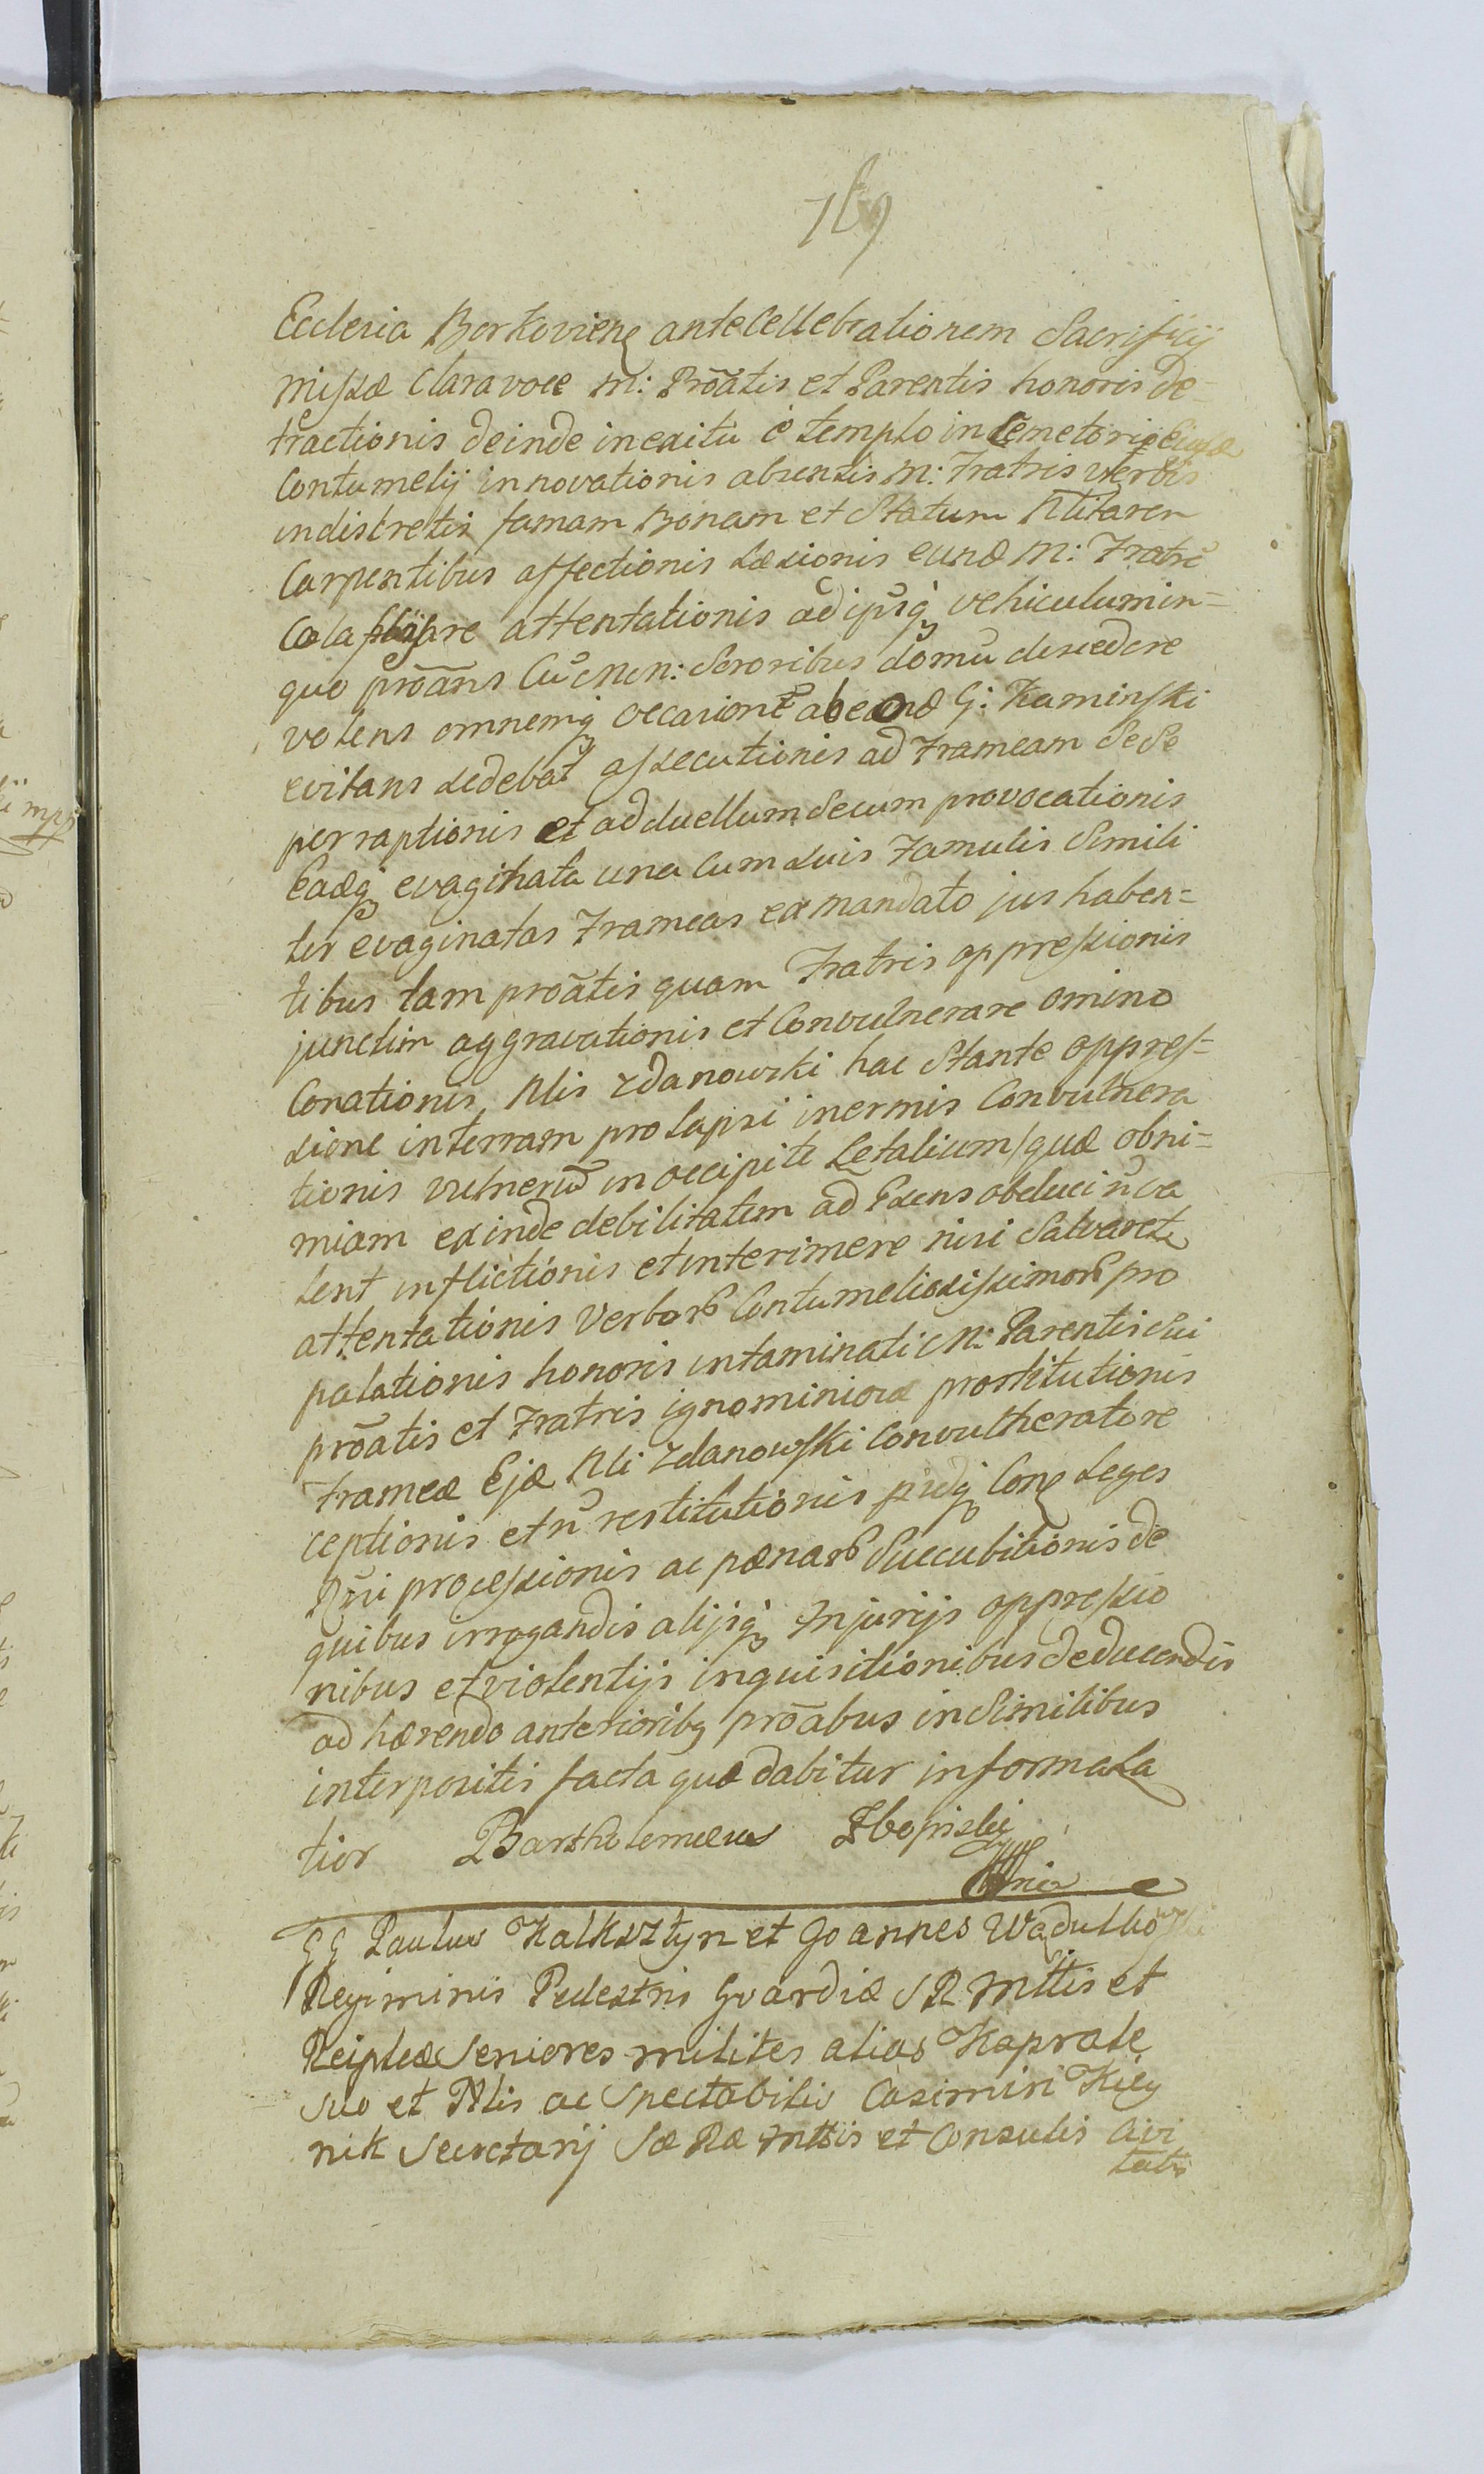 Ecclesia Borkoviens ante Cellebrationem Sacrificij
missæ Clara voce M: Prõatis et Parentis honoris de=
tractionis deinde in exitu è templo in Cemetorio
Contumelij innovationis absentis M: Fratris verbis
indiscretis famam Bonam et Statum Nlitarem
Carpentibus affectionis Læsionis eund M: Fratrẽ
attentationis ad ipsiq vehiculum in=
quo prõans Cũ Mcn: Sororibus domũ discedere
volens omnemq occasionẽ ab eond G: Kaminski
evitans sedebat assecutionis ad Frameam Se Se
perraptionis et ad duellum Secum provocationis
Eadq evaginata una Cum Suis Famulis Simili
ter evaginatas Frameas ex mandato jus haben=
tibus tam prõatis quam Fratris oppressionis
junctim aggravationis et Convulnerare omino
Conationis, Nlis Zdanowski hac Stante oppres=
sione in terram prolapsi inermis Convulnera
tionis vulnerũ in occipite Letalium quæ obni=
miam exinde debilitatem ad Extens obduci ñ va
lent inflictionis et interimere nisi Salvaret
attentationis Verbor Contumeliosissimor pro
palationis honoris intaminati M: Parentis Sui
prõatis et Fratris ignominiosæ prostitutionis
Frameæ Ejæ Nli Zdanowski Convulneratore
ceptionis et ñ restitutionis pudq Con Leges
Rñi processionis ac pænar Succubitionis de
quibus irrogandis alijsq Injurijs oppressio
nibus et violentijs inquisitionibus deducendis
adhærendo anteriorib prõabus in Similibus
interpositis facta quæ dabitur informata
tior Bartholemæus
GG Paulus Kalksztyn et Joannes
Regiminis Pedestris Gvardiæ S R Mttis et
Reiplcæ Seniores milites alias Kaprale
Suo et Nlis ac Spectabilis Casimiri
nik Secretarij Sæ Ræ Mttis et Consulis Civi
tatis